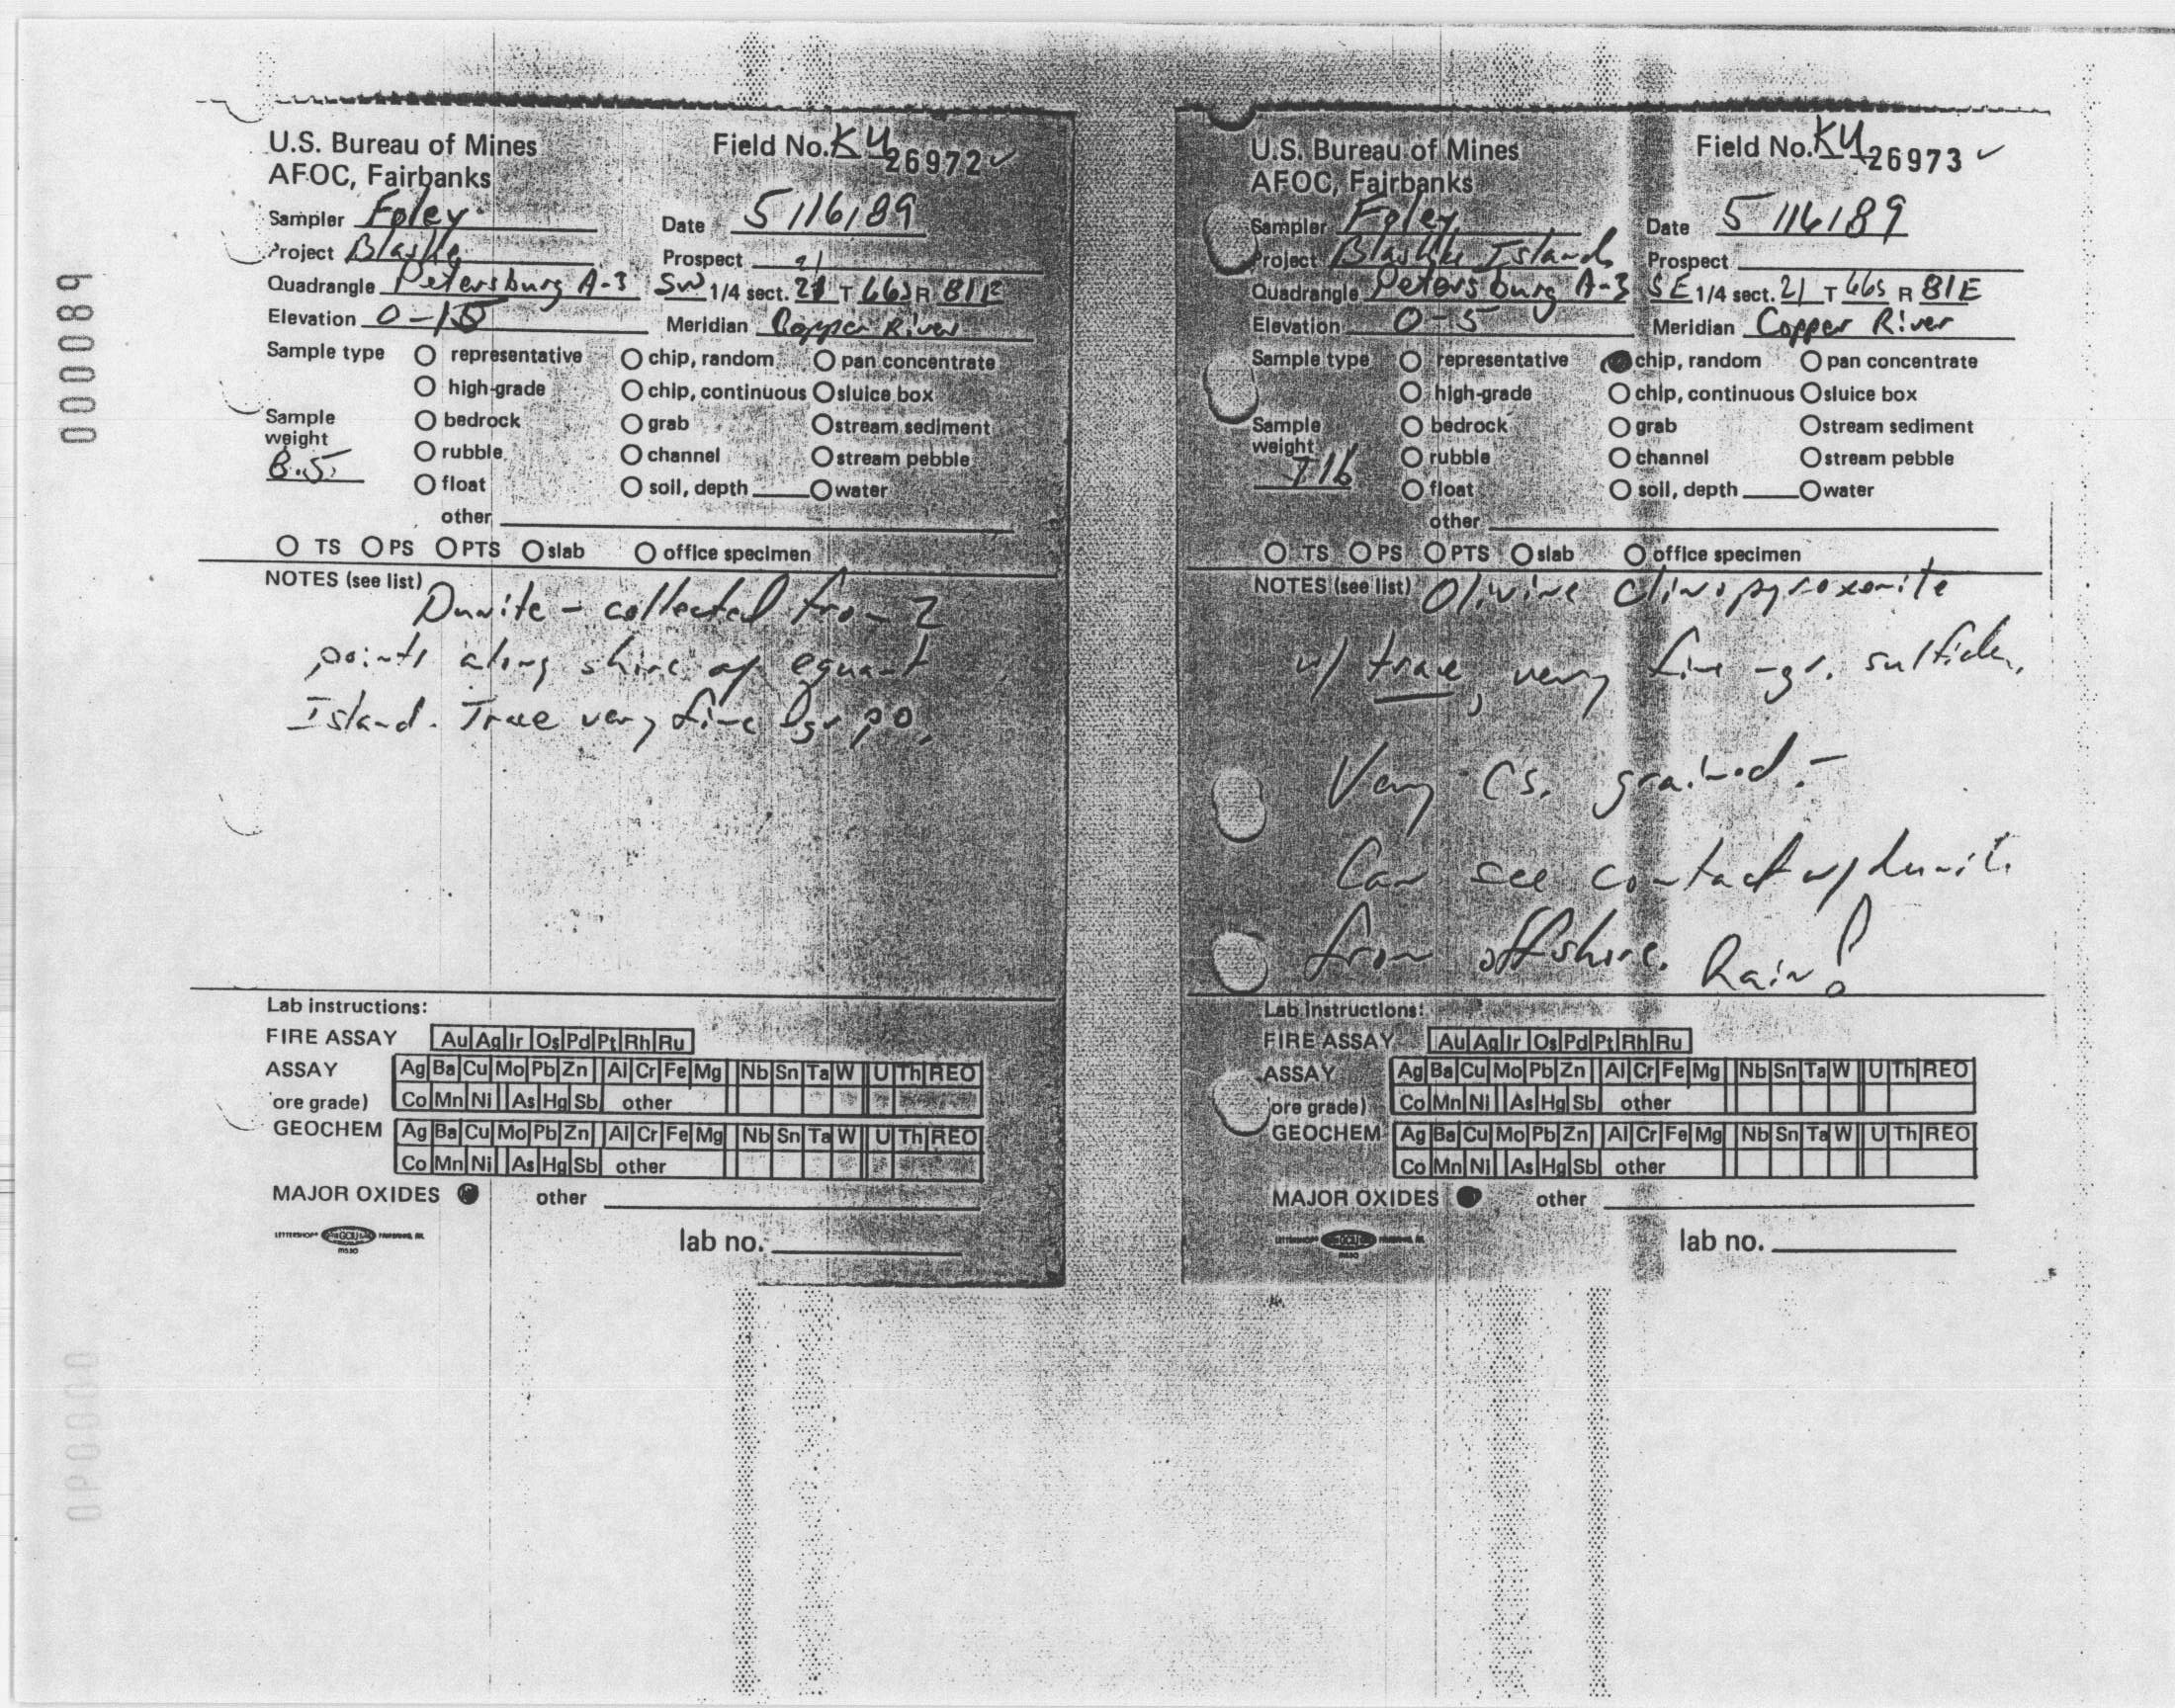 000089
U.S. Bureau of Mines
AFOC, Fairbanks
Field No. KU 26972 ✓
Sampler Foley
Date 5/16/89
Project Blashke
Prospect
21
Quadrangle Petersburg A-3 SW 1/4 sect. 21 T 66S R 81E
Elevation 0-15
Meridian Copper River
Sample type O representative O chip, random O pan concentrate
O high-grade O chip, continuous O sluice box
Sample weight O bedrock O grab O stream sediment
8.5 O rubble O channel O stream pebble
O float O soil, depth O water
other
O TS O PS O PTS O slab O office specimen
NOTES (see list)
Dunite - collected from 2
points along shore of equant
Island. Trace very fine gr po.
Lab instructions:
FIRE ASSAY Au Ag Ir Os Pd Pt Rh Ru
ASSAY Ag Ba Cu Mo Pb Zn Al Cr Fe Mg Nb Sn Ta W U Th REO
ore grade) Co Mn Ni As Hg Sb other
GEOCHEM Ag Ba Cu Mo Pb Zn Al Cr Fe Mg Nb Sn Ta W U Th REO
Co Mn Ni As Hg Sb other
MAJOR OXIDES ● other
lab no.
U.S. Bureau of Mines
AFOC, Fairbanks
Field No. KU 26973 ✓
Sampler Foley
Date 5/16/89
Project Blashke Islands
Prospect
Quadrangle Petersburg A-3 SE 1/4 sect. 21 T 66S R 81E
Elevation 0-5
Meridian Copper River
Sample type O representative ● chip, random O pan concentrate
O high-grade O chip, continuous O sluice box
Sample weight O bedrock O grab O stream sediment
7 lb O rubble O channel O stream pebble
O float O soil, depth O water
other
O TS O PS O PTS O slab O office specimen
NOTES (see list) Olivine clinopyroxenite
w/ trace, very fine-gr. sulfides.
Very cs. grained.-
Can see contact w/ dunite
from offshore. Rain!
Lab instructions:
FIRE ASSAY Au Ag Ir Os Pd Pt Rh Ru
ASSAY Ag Ba Cu Mo Pb Zn Al Cr Fe Mg Nb Sn Ta W U Th REO
ore grade) Co Mn Ni As Hg Sb other
GEOCHEM Ag Ba Cu Mo Pb Zn Al Cr Fe Mg Nb Sn Ta W U Th REO
Co Mn Ni As Hg Sb other
MAJOR OXIDES ● other
lab no.
000090